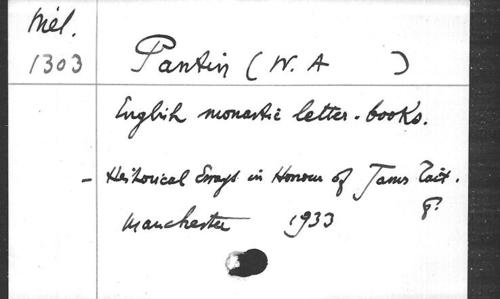 Mél.
1303
Pantin (W. A )
English monastic letter-books.
- Historical Essays in Honour of James Tait.
Manchester 1933